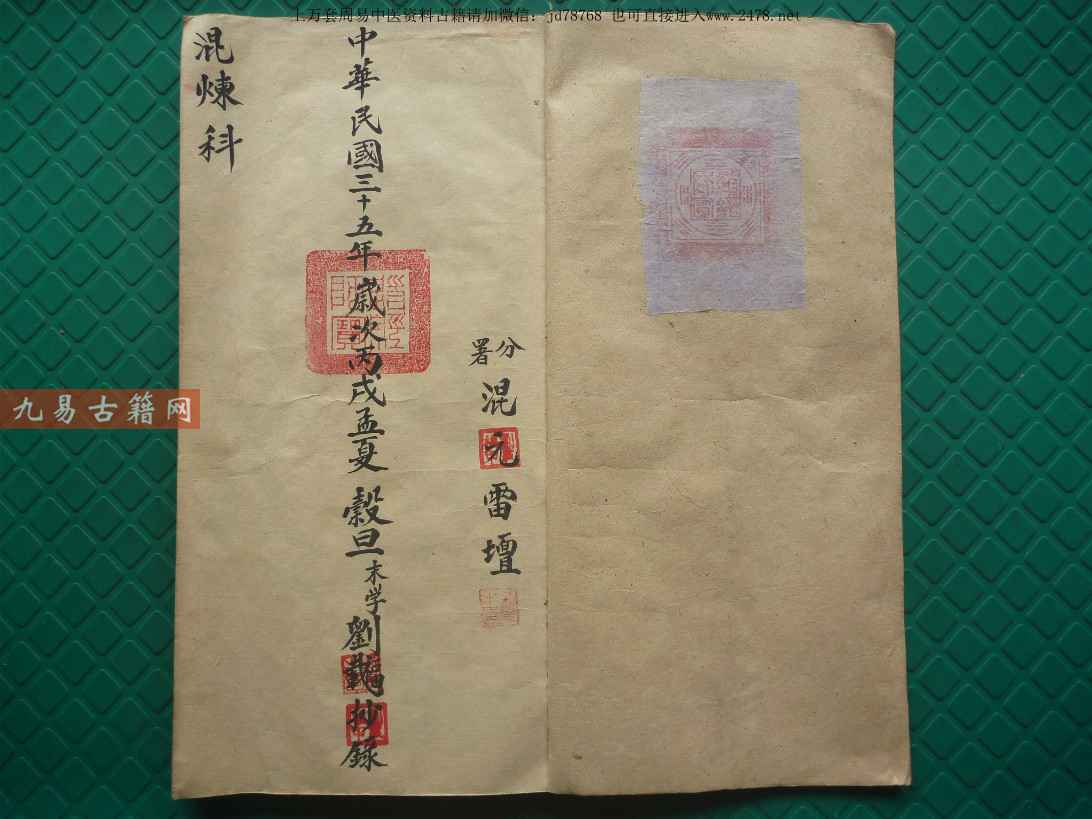 上万套周易中医资料古籍请加微信：jd78768 也可直接进入www.2478.net
分署混元雷壇
中華民國三十五年歲次丙戌孟夏穀旦末学劉抄錄
混煉科
九易古籍网